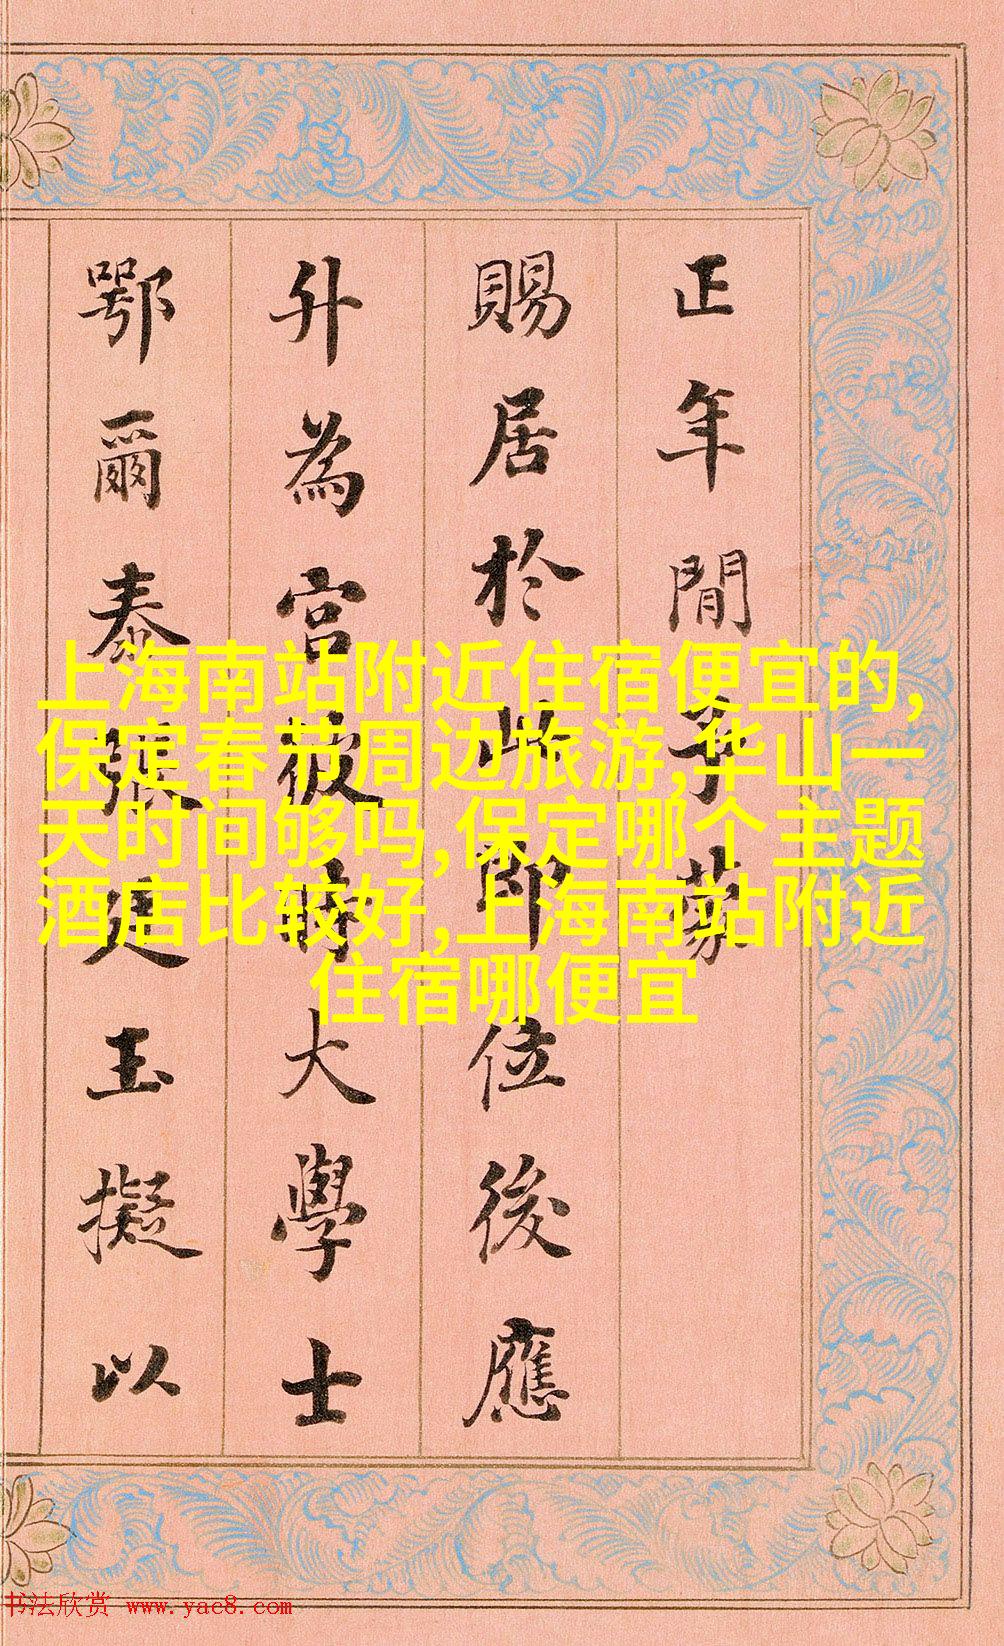 正年間予蒙
賜居於此即位後應
升為宮彼時大學士
鄂爾泰張廷玉擬以
上海南站附近住宿便宜的,
保定春节周边旅游,华山一
天时间够吗,保定哪个主题
酒店比较好,上海南站附近
住宿哪便宜
书法欣赏 www.yac8.com